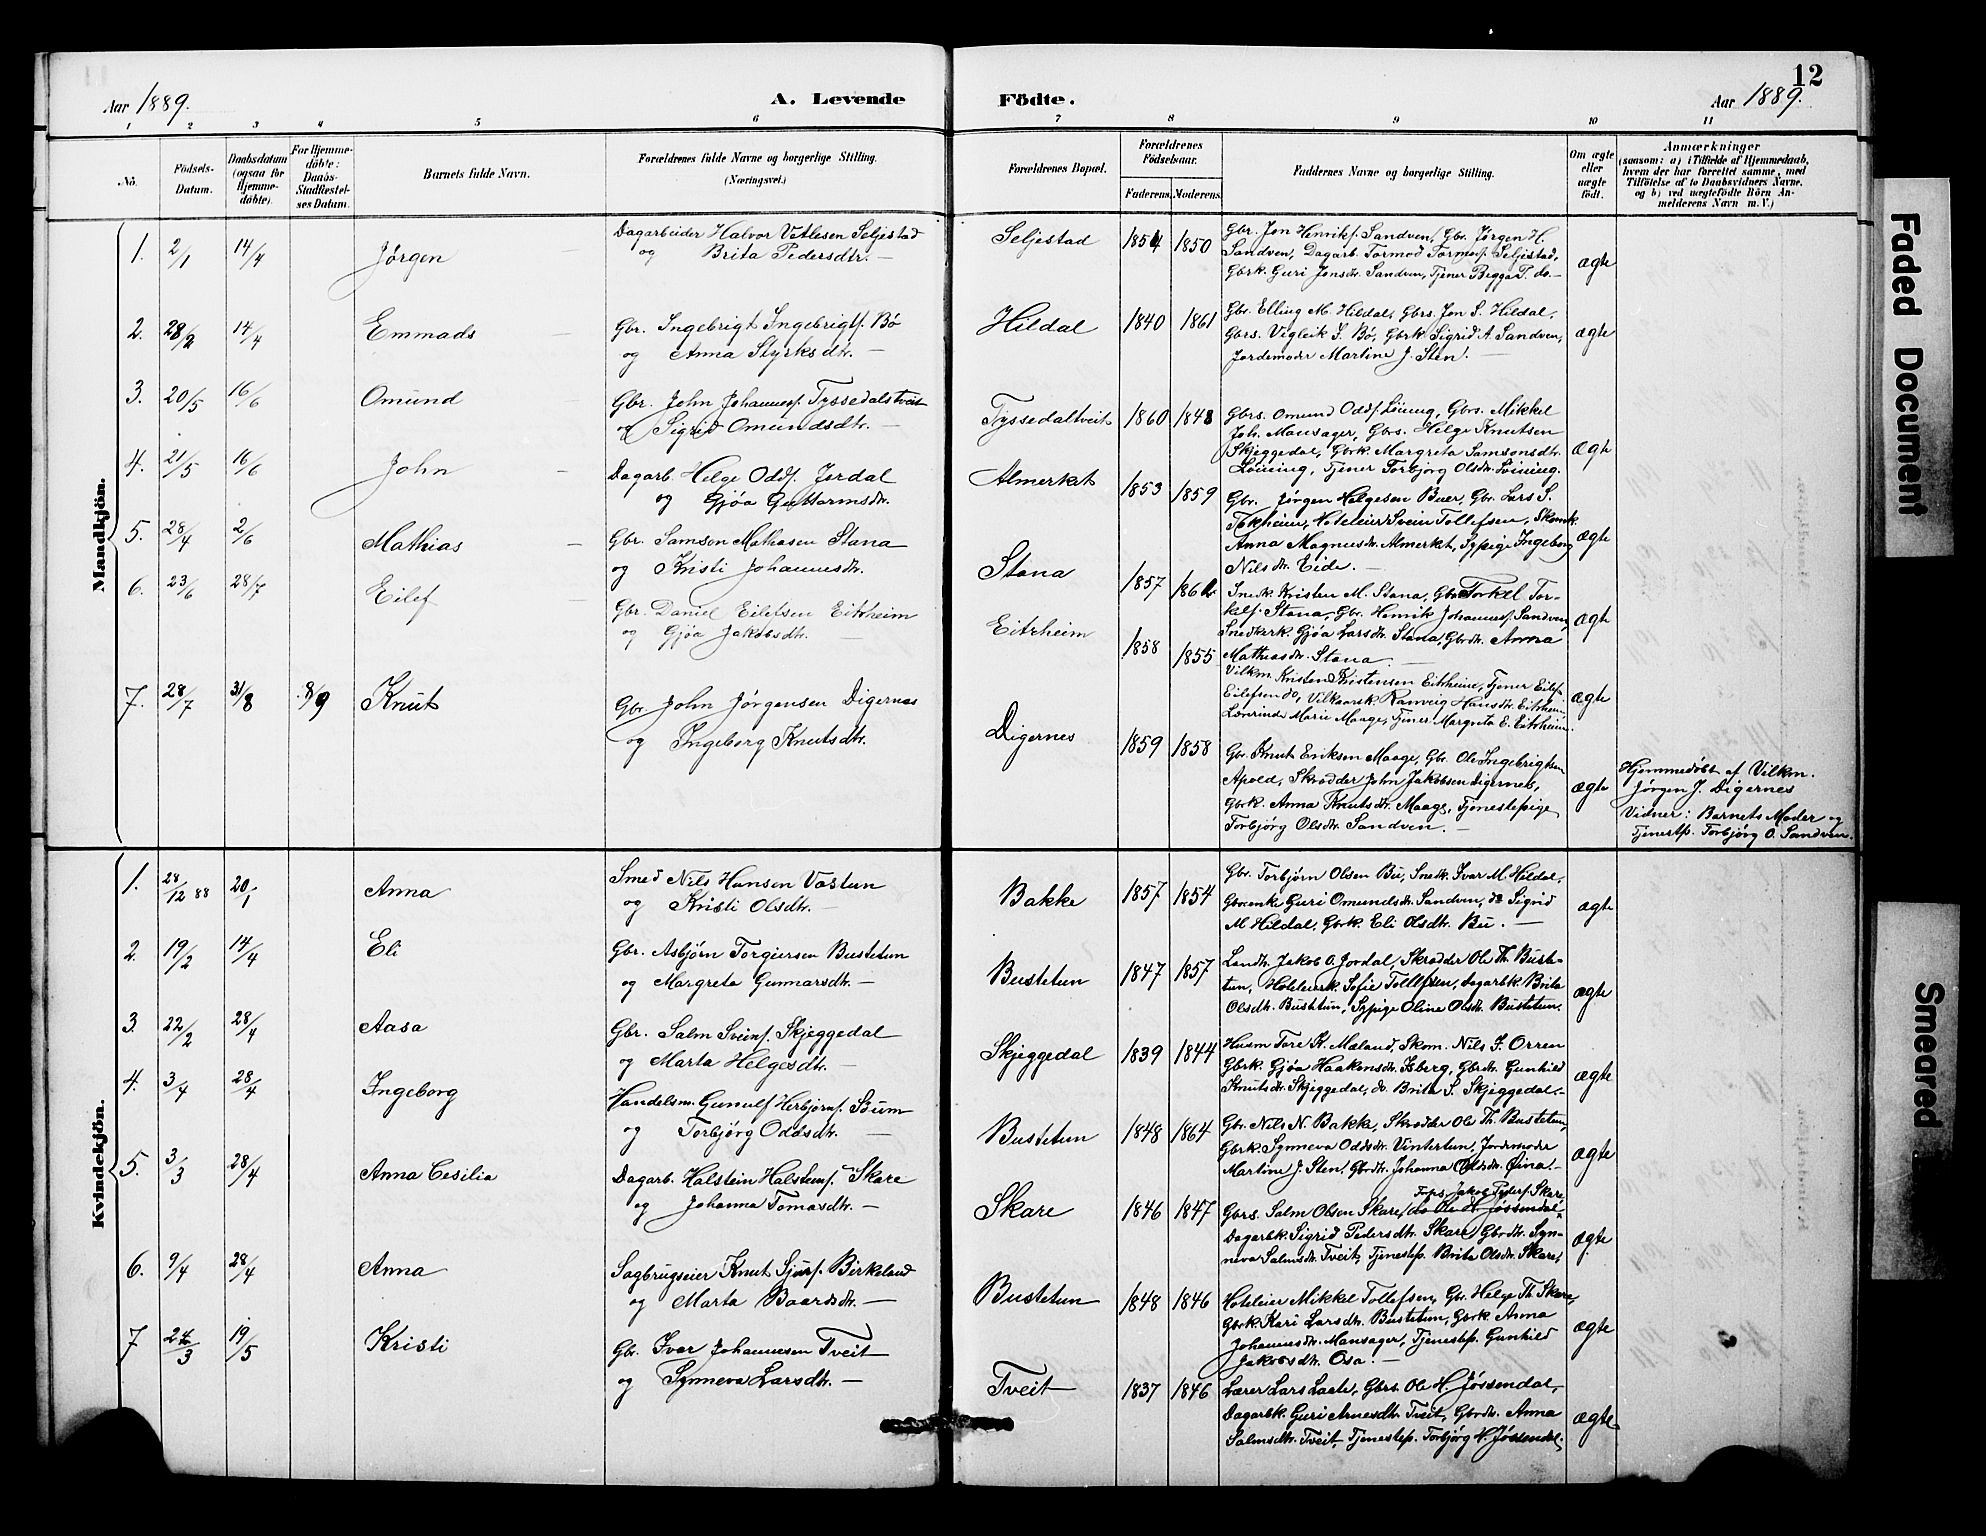 12
Aar 1889.
A. Levende
Födte.
Aar 1889.
1 2 3 4 5 6 7 8 9 10 11
No.
Födsels-Datum.
Daabsdatum (ogsaa for Hjemme-döbte).
For Hjemme-döbte: Daabs-Stadfæstel-ses Datum.
Barnets fulde Navn.
Forældrenes fulde Navne og borgerlige Stilling. (Næringsvei.)
Forældrenes Bopæl.
Forældrenes Födselsaar.
Faderens. Moderens.
Faddernes Navne og borgerlige Stilling.
Om ægte eller uægte födt.
Anmærkninger
(saasom: a) i Tilfælde af Hjemmedaab,
hvem der har forrettet samme, med
Tilföielse af to Daabsvidners Navne,
og b) ved uægtefödte Börn An-
melderens Navn m. V.)
Mandkjön.
1. 2/1 14/4 Jørgen
Dagarbeider Halvor Vetlesen Seljestad
og Brita Pedersdtr. —
Seljestad 1854 1850
Gbr. Jon Henriks. Sandven, Gbr. Jørgen H.
Sandven, Dagarb. Tormod Tormods. Seljestad,
Gbrk. Guri Jonsdtr. Sandven, Tjener Begga T. do. —
ægte
2. 28/2 14/4 Emmads
Gbr. Ingebrigt Ingebrigts. Bø
og Anna Styrksdtr. —
Hildal 1840 1861
Gbr. Elling M. Hildal, Gbrs. Jon S. Hildal,
Gbrs. Vigleik S. Bø, Gbrk. Sigrid A. Sandven,
Jordemoder Martine J. Sten. —
ægte
3. 20/5 16/6 Omund
Gbr. John Johanness. Tyssedalstveit
og Sigrid Omundsdtr. —
Tyssedaltveit 1860 1848
Gbrs. Omund Odds. Löining, Gbrs. Mikkel
Joh. Mansager, Gbrs. Helge Knutsen
Skjeggedal, Gbrk. Margreta Samsonsdtr.
Löining, Tjener Torbjörg Olsdtr. Löining.
ægte
4. 21/5 16/6 John
Dagarb. Helge Odds. Jordal
og Gjøa Guttormsdtr.
Almerket 1853 1859
Gbr. Jørgen Helgesen Buer, Gbr. Lars S.
Tokheim, Hoteleier Svein Tollefsen, Skomk.
Anna Magnusdtr. Almerket, Sypige Ingeborg
Nilsdtr. Eide. —
ægte
5. 28/4 2/6 Mathias
Gbr. Samson Mathiasen Stana
og Kristi Johannesdtr.
Stana 1857
Snedk. Kristen M. Stana, Gbr. Torkel Tor-
kels. Stana, Gbr. Henrik Johanness. Sandven,
Snedkerk. Gjøa Larsdtr. Stana, Gbrdtr. Anna
Mathiasdtr. Stana. —
ægte
6. 23/6 28/7 Eilef
Gbr. Daniel Eilefsen Eitrheim
og Gjøa Jakobsdtr. —
Eitrheim 1858 1855
Vilkm. Kristend Kristensen Eitrheim, Tjener Eilef
Eilefsen do, Vilkaarsk. Ranveig Hansdtr. Eitrheim
Lærerinde Marie Maage, Tjener Margreta E. Eitrheim.
ægte
7. 28/7 31/8 8/9 Knut
Gbr. John Jörgensen Digernes
og Ingeborg Knutsdtr.
Digernes 1859 1858
Gbr. Knut Eriksen Maage, Gbr. Ole Ingebrigtsen
Apold, Skrædder John Jakobsen Digernes,
Gbrk. Anna Knutsdtr. Maage, Tjenestepige
Torbjörg Olsdtr. Sandven. —
ægte
Hjemmedøbt af Vilkm.
Jørgen J. Digernes
Vidner: Barnets Moder og
Tjenestp. Torbjörg O. Sandven.
Kvindekjön.
1. 28/12 88 20/1 Anna
Smed Nils Hansen Vastun
og Kristi Olsdtr. —
Bakke 1857 1854
Gbr. Torbjørn Olsen Bu, Snedk. Ivar M. Hildal,
Gbrenke Guri Omundsdtr. Sandven, do Sigrid
M. Hildal, Gbrk. Eli Olsdtr. Bu. —
ægte
2. 19/2 14/4 Eli
Gbr. Asbjørn Torgiersen Bustetun
og Margreta Gunnarsdtr. —
Bustetun 1847 1857
Landh. Jakob O. Jordal, Skrædder Ole Th. Buste-
tun, Hoteleierk. Sofie Tollefsen, Dagarbk. Brita
Olsdtr. Bustetun, Sypige Oline Olsdtr. Bustetun.
ægte
3. 22/2 28/4 Aasa
Gbr. Salm Sveins. Skjeggedal
og Marta Helgesdtr. —
Skjeggedal 1839 1844
Husm. Tore K. Mæland, Skom. Nils J. Orren
Gbrk. Gjøa Haakonsdtr. Isberg, Gbrdtr. Gunhild
Knutsdtr. Skjeggedal, do. Brita S. Skjeggedal. —
ægte
4. 3/4 28/4 Ingeborg
Handelsm. Gunulf Herbjørns. Söum
og Torbjörg Oddsdtr. —
Bustetun 1848 1864
Gbr. Nils N. Bakke, Skrædder Ole Th. Bustetun,
Gbrk. Synneva Oddsdtr. Vintertun, Jordemoder
Martine J. Sten, Gbrdtr. Johanna Oldsdtr. Eina. —
ægte
5. 3/3 28/4 Anna Cesilia
Dagarb. Halstein Halsteins. Skare
og Johanna Tomasdtr. —
Skare 1846 1847
Jakob Peders. Skare
Gbrs. Salm Olsen Skare, do Ole H. Jøssendal,
Dagarbk. Sigrid Pedersdtr. Skare, Gbrdtr. Syn-
neva Salmsdtr. Tveit, Tjenestep. Brita Olsdtr. Skare,
ægte
6. 9/4 28/4 Anna
Sagbrugseier Knut Sjurs. Birkeland
og Marta Baardsdtr. —
Bustetun 1848 1846
Hoteleier Mikkel Tollefsen, Gbr. Helge Th. Skare,
Gbrk. Kari Larsdtr. Bustetun, Gbrk. Anna
Johannesdtr. Mansager, Tjenestep. Gunhild
Jakobsdtr. Osa. —
ægte
7 24/3 19/5 Kristi
Gbr. Ivar Johannesen Tveit
og Synneva Larsdtr. —
Tveit 1837 1846
Lærer Lars Laate, Gbrs. Ole H. Jøssendal,
Dagarbk. Guri Arnesdtr. Tveit, Gbrdtr. Anna
Salmsdtr. Tveit, Tjenestep. Torbjörg H. Jøssendal.
ægte
Faded Document
Smeared